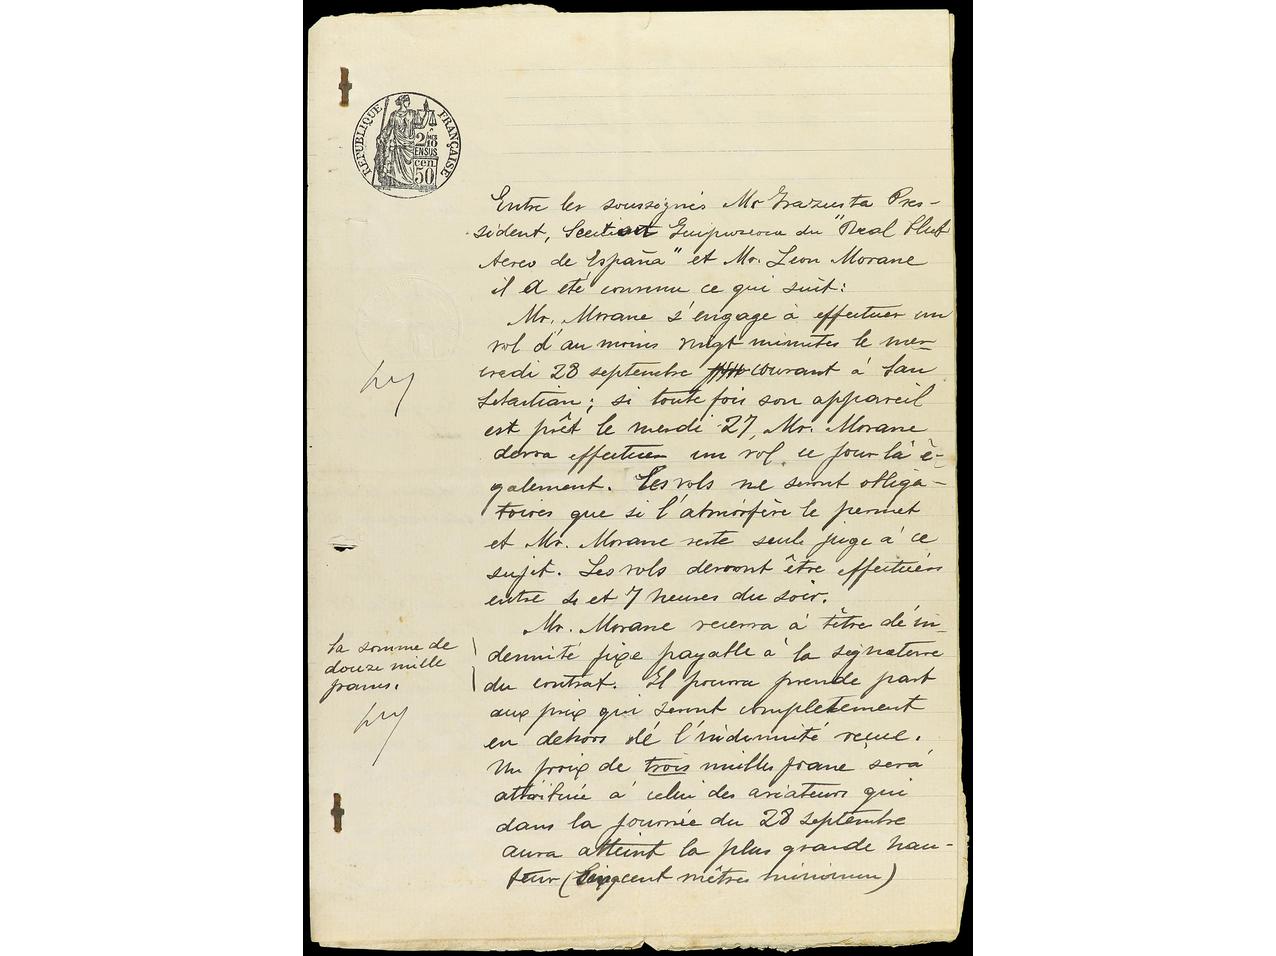 RÉPUBLIQUE FRANÇAISE
2/10
EN SUS
50 cen
Entre les soussignés Mr Grazusta Pres-
sident, Section Guipuscoa du "Real Club
Aereo de España" et Mr. Léon Morane
il a été convenu ce qui suit:
Mr. Morane s'engage à effectuer un
vol d'au moins vingt minutes le mer-
credi 28 septembre courant à San
Sebastian; si toute fois son appareil
est prêt le mardi 27, Mr. Morane
devra effectuer un vol ce jour là é-
galement. Les vols ne seront obliga-
toires que si l'atmósfère le permet
et Mr. Morane reste seule juge à ce
sujet. Les vols devront être effectués
entre 4 et 7 heures du soir.
Mr. Morane recevra à titre dé in-
demnité fixe payable à la signature
La somme de
douze mille
francs.
du contrat. Il pourra prende part
aux prix qui seront completement
en dehors dé l'indemnité reçue.
Un prix de trois milles franc será
attribuée á celui des aviateurs qui
dans la journée du 28 septembre
aura atteint la plus grande hau-
teur (cent mêtres minimum)